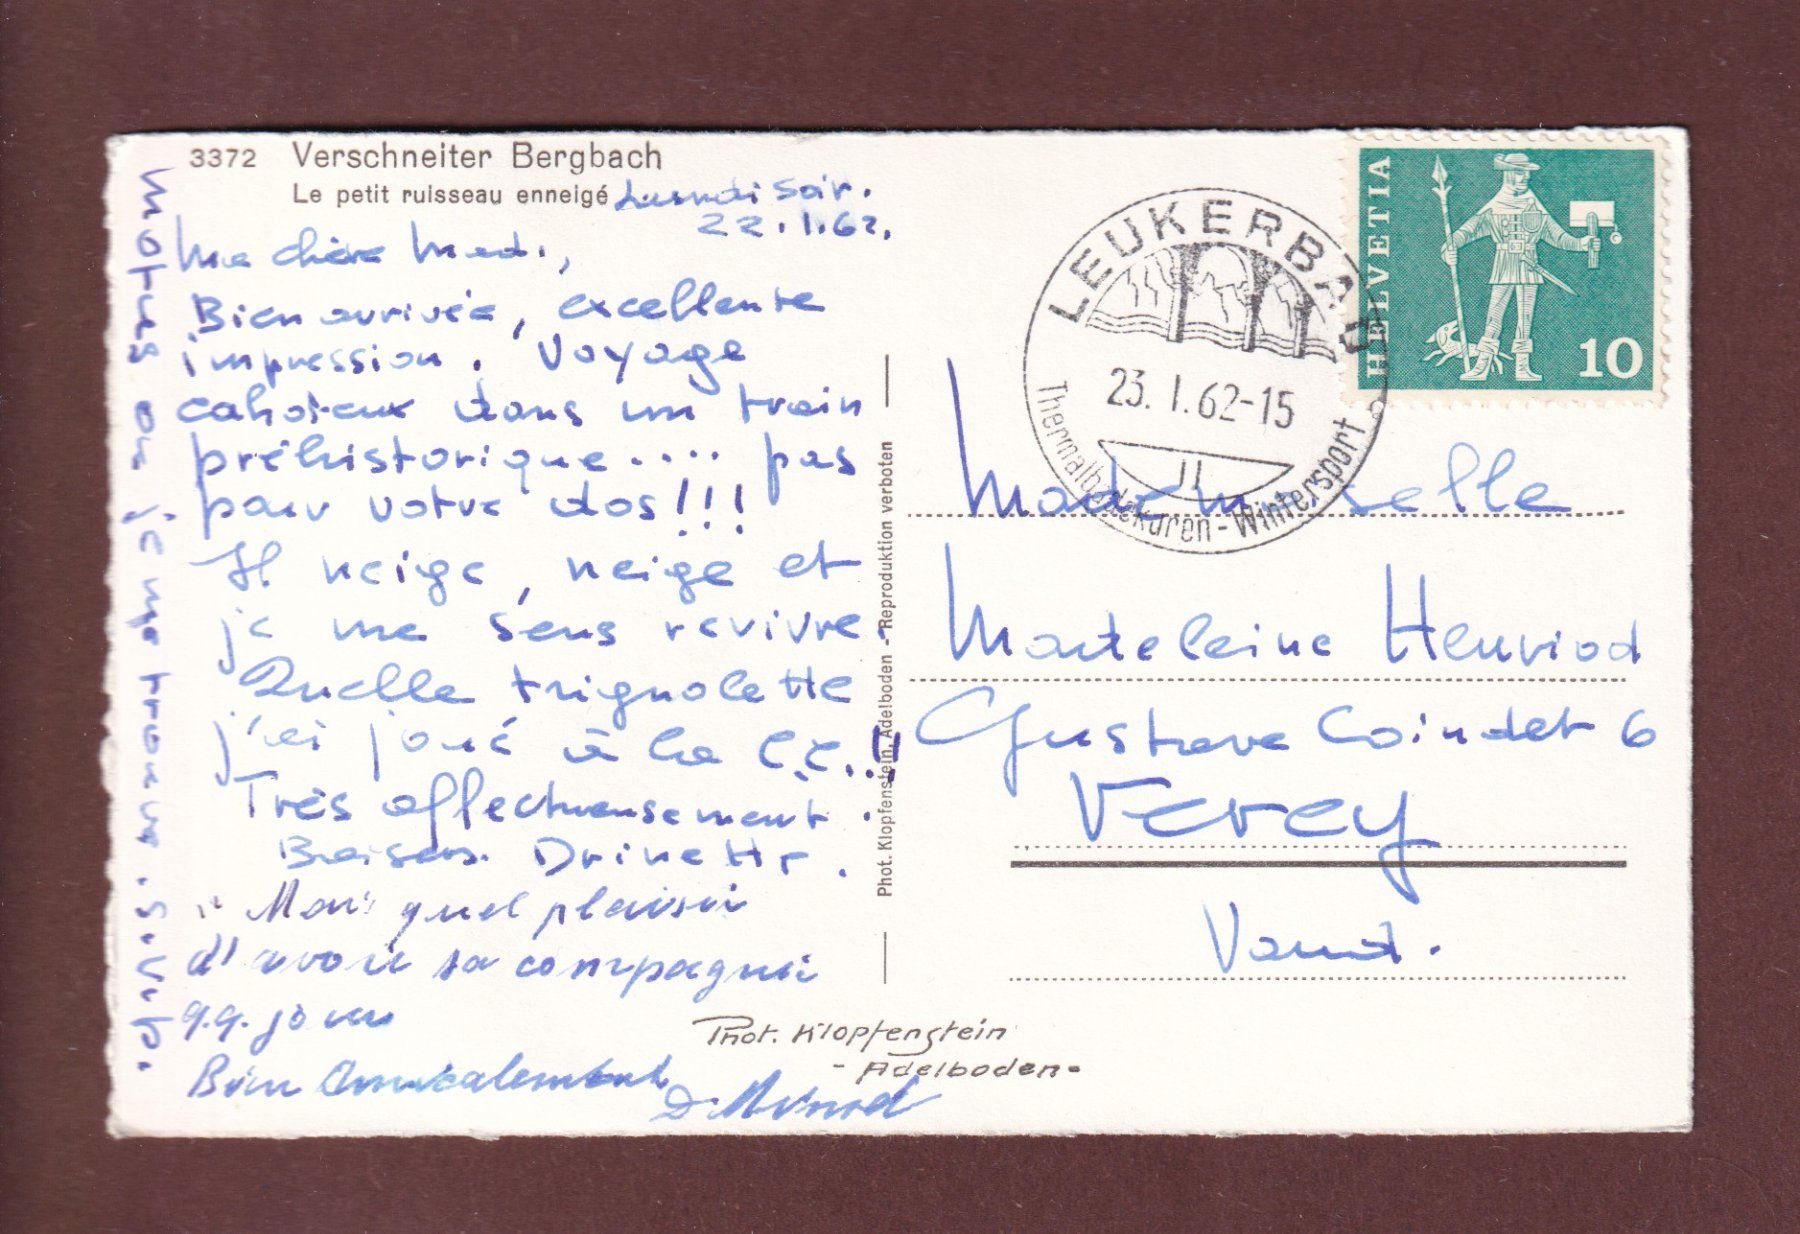 3372 Verschneiter Bergbach
Le petit ruisseau enneigé
Lundi soir.
22.1.62.
Ma chère Mad.,
Bien arrivée, excellente
impression. Voyage
cahoteux dans un train
préhistorique.... pas
pour votre dos!!!
Il neige, neige et
je me sens revivre.
Quelle trignolette
j'ai joué à la C.C..!
Très affectueusement.
Baisers. Drinette.
Mais quel plaisir
d'avoir sa compagnie
q.q. jours
Bien amicalement
D. Monod
motus où je me trouve. S.V.P.
Phot. Klopfenstein, Adelboden - Reproduktion verboten
Phot. Klopfenstein
- Adelboden -
LEUKERBAD
23. 1. 62-15
Thermalbadekuren - Wintersport
HELVETIA
10
Mademoiselle
Madeleine Henriod
Gustave Coindet 6
Vevey
Vaud.